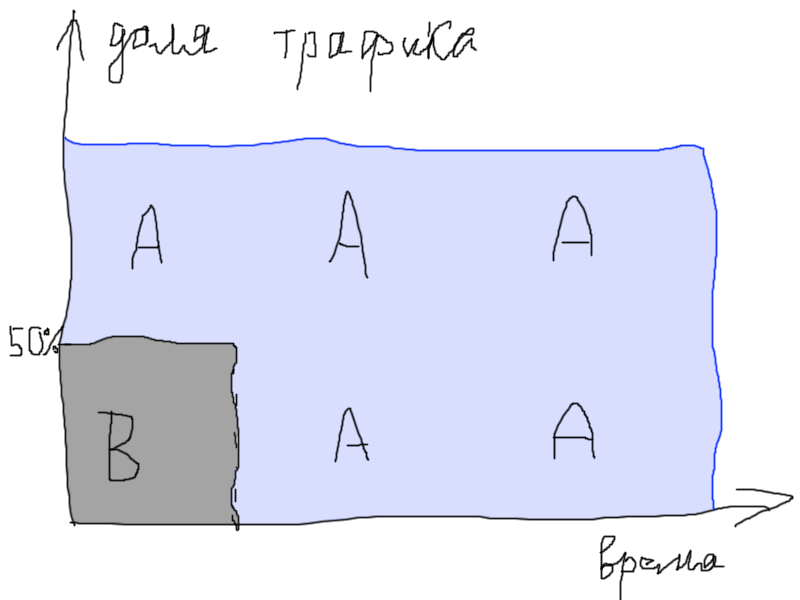 доля трафика
A A A
50%
B A A
время